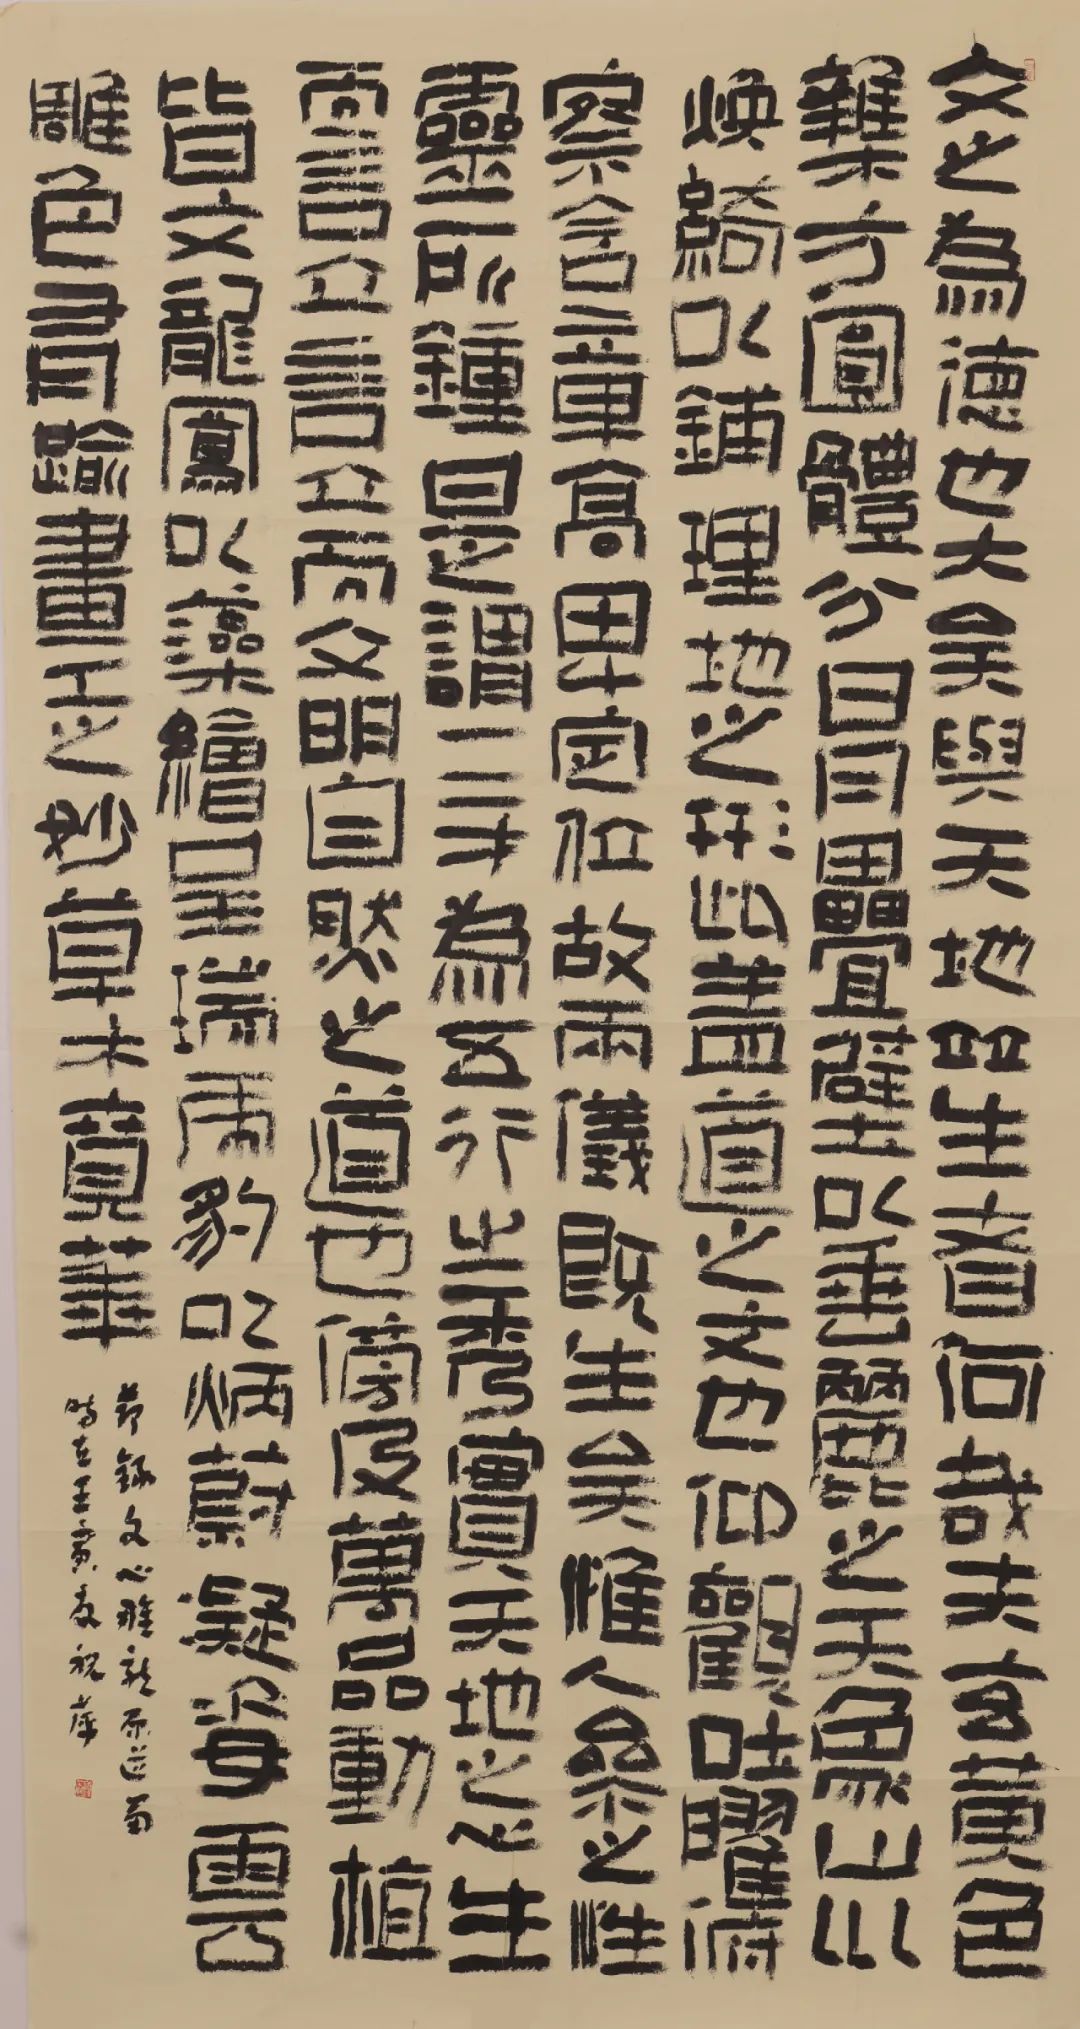 文之為德也大矣與天地竝生者何哉夫玄黃色
雜方圓體分日月疊璧以垂麗之天象山川
煥綺以鋪理地之形此蓋道之文也仰觀吐曜俯
察含章高卑定位故兩儀既生矣惟人參之性
靈所鍾是謂三才為五行之秀實天地之心生
而言立言立而文明自然之道也傍及萬品動植
皆文龍鳳以藻繪呈瑞虎豹以炳蔚凝姿雲
雕色有踰畫工之妙草木賁華
節錄文心雕龍原道
時在壬寅夏祝